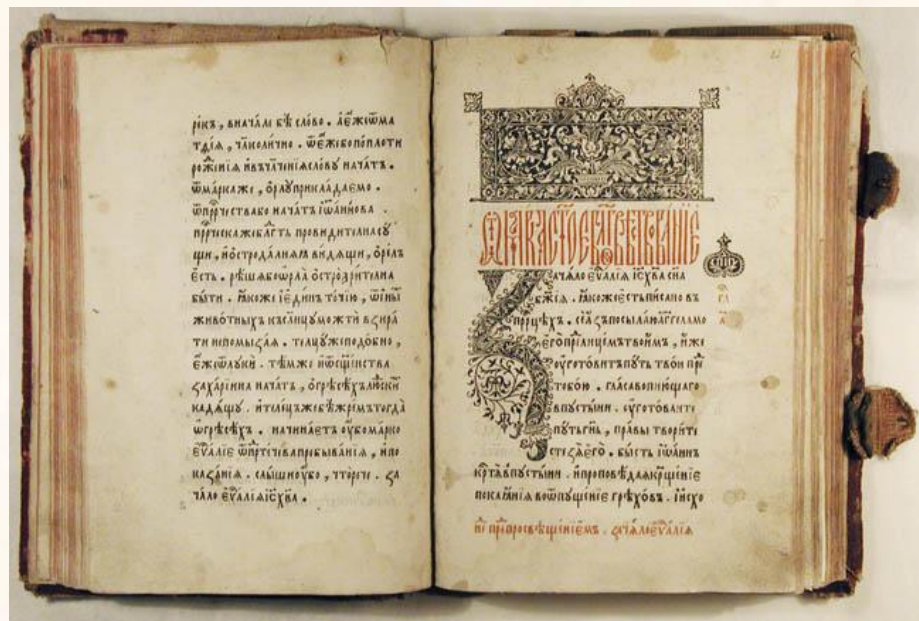 рекъ, вначалѣ бѣ слово. а є́же ѿ ма
тѳїа, чл҃колично. ѿ є́же бо по плоти
роженїѧ и҆ въчл҃ченїѧ слову начатъ.
ѿ марка же, ѻ҆рлу прикладаемо.
ѿ пррⷪ҇чества бо начатъ і҆ѡаннова.
прⷪ҇рческаѧ же бл҃гⷣть провидителна сꙋ
щи, и҆ ѻ҆стро далнѧѧ видѧщи, ѻ҆релъ
є҆сть. рѣшѧ бо ѻ҆рла ѻ҆строзрителна
быти. ꙗ҆коже і҆ є҆динъ точїю, ѿ и҆ны
животныхъ къ слн҃цꙋ можти взира
ти непомызаѧ. телцꙋ же подобно,
є҆же ѿ лꙋки. тѣмже и҆ ѿ сщ҃енства
захарїина начатъ, ѻ҆ грѣсѣхъ людски
кадѧщꙋ. и҆ телецъ же бѣ жремъ тогда
ѡ҆ грѣсѣхъ. начинаетъ ᲂу҆бо марко
є҆ѵⷢ҇алїе ѿ прⷣтечева пребыванїѧ, и҆ по
казанїѧ. слыши ᲂу҆бо, что рече. за
чало є҆ѵⷢ҇алїѧ і҆с҃ хв҃а.
ѿ марка ст҃ое бл҃говѣствованїе
зачѧло є҆ѵⷢ҇алїѧ і҆с҃ хв҃а сн҃а
бж҃їѧ. ꙗ҆коже є҆сть писано въ
прⷪ҇рцѣхъ. се а҆зъ посылаю а҆гг҃ла мо
є҆го пре лицемъ твоимъ, и҆же
ᲂу҆готовитъ пꙋть твои пре
тобою. гласъ вопиющаго
в пꙋстыни. ᲂу҆готоваите
пꙋть гн҃ь, правы творите
стезѧ є҆го. бысть і҆ѡаннъ
крⷭ҇тѧ в пꙋстыни. и҆ проповѣдаѧ крⷳ҇щенїе
покаꙗнїѧ во ѿпꙋщенїе грѣховъ. и҆ исхо
нⷣе пре просвѣщенїемъ. зачѧло є҆ѵⷢ҇алїѧ